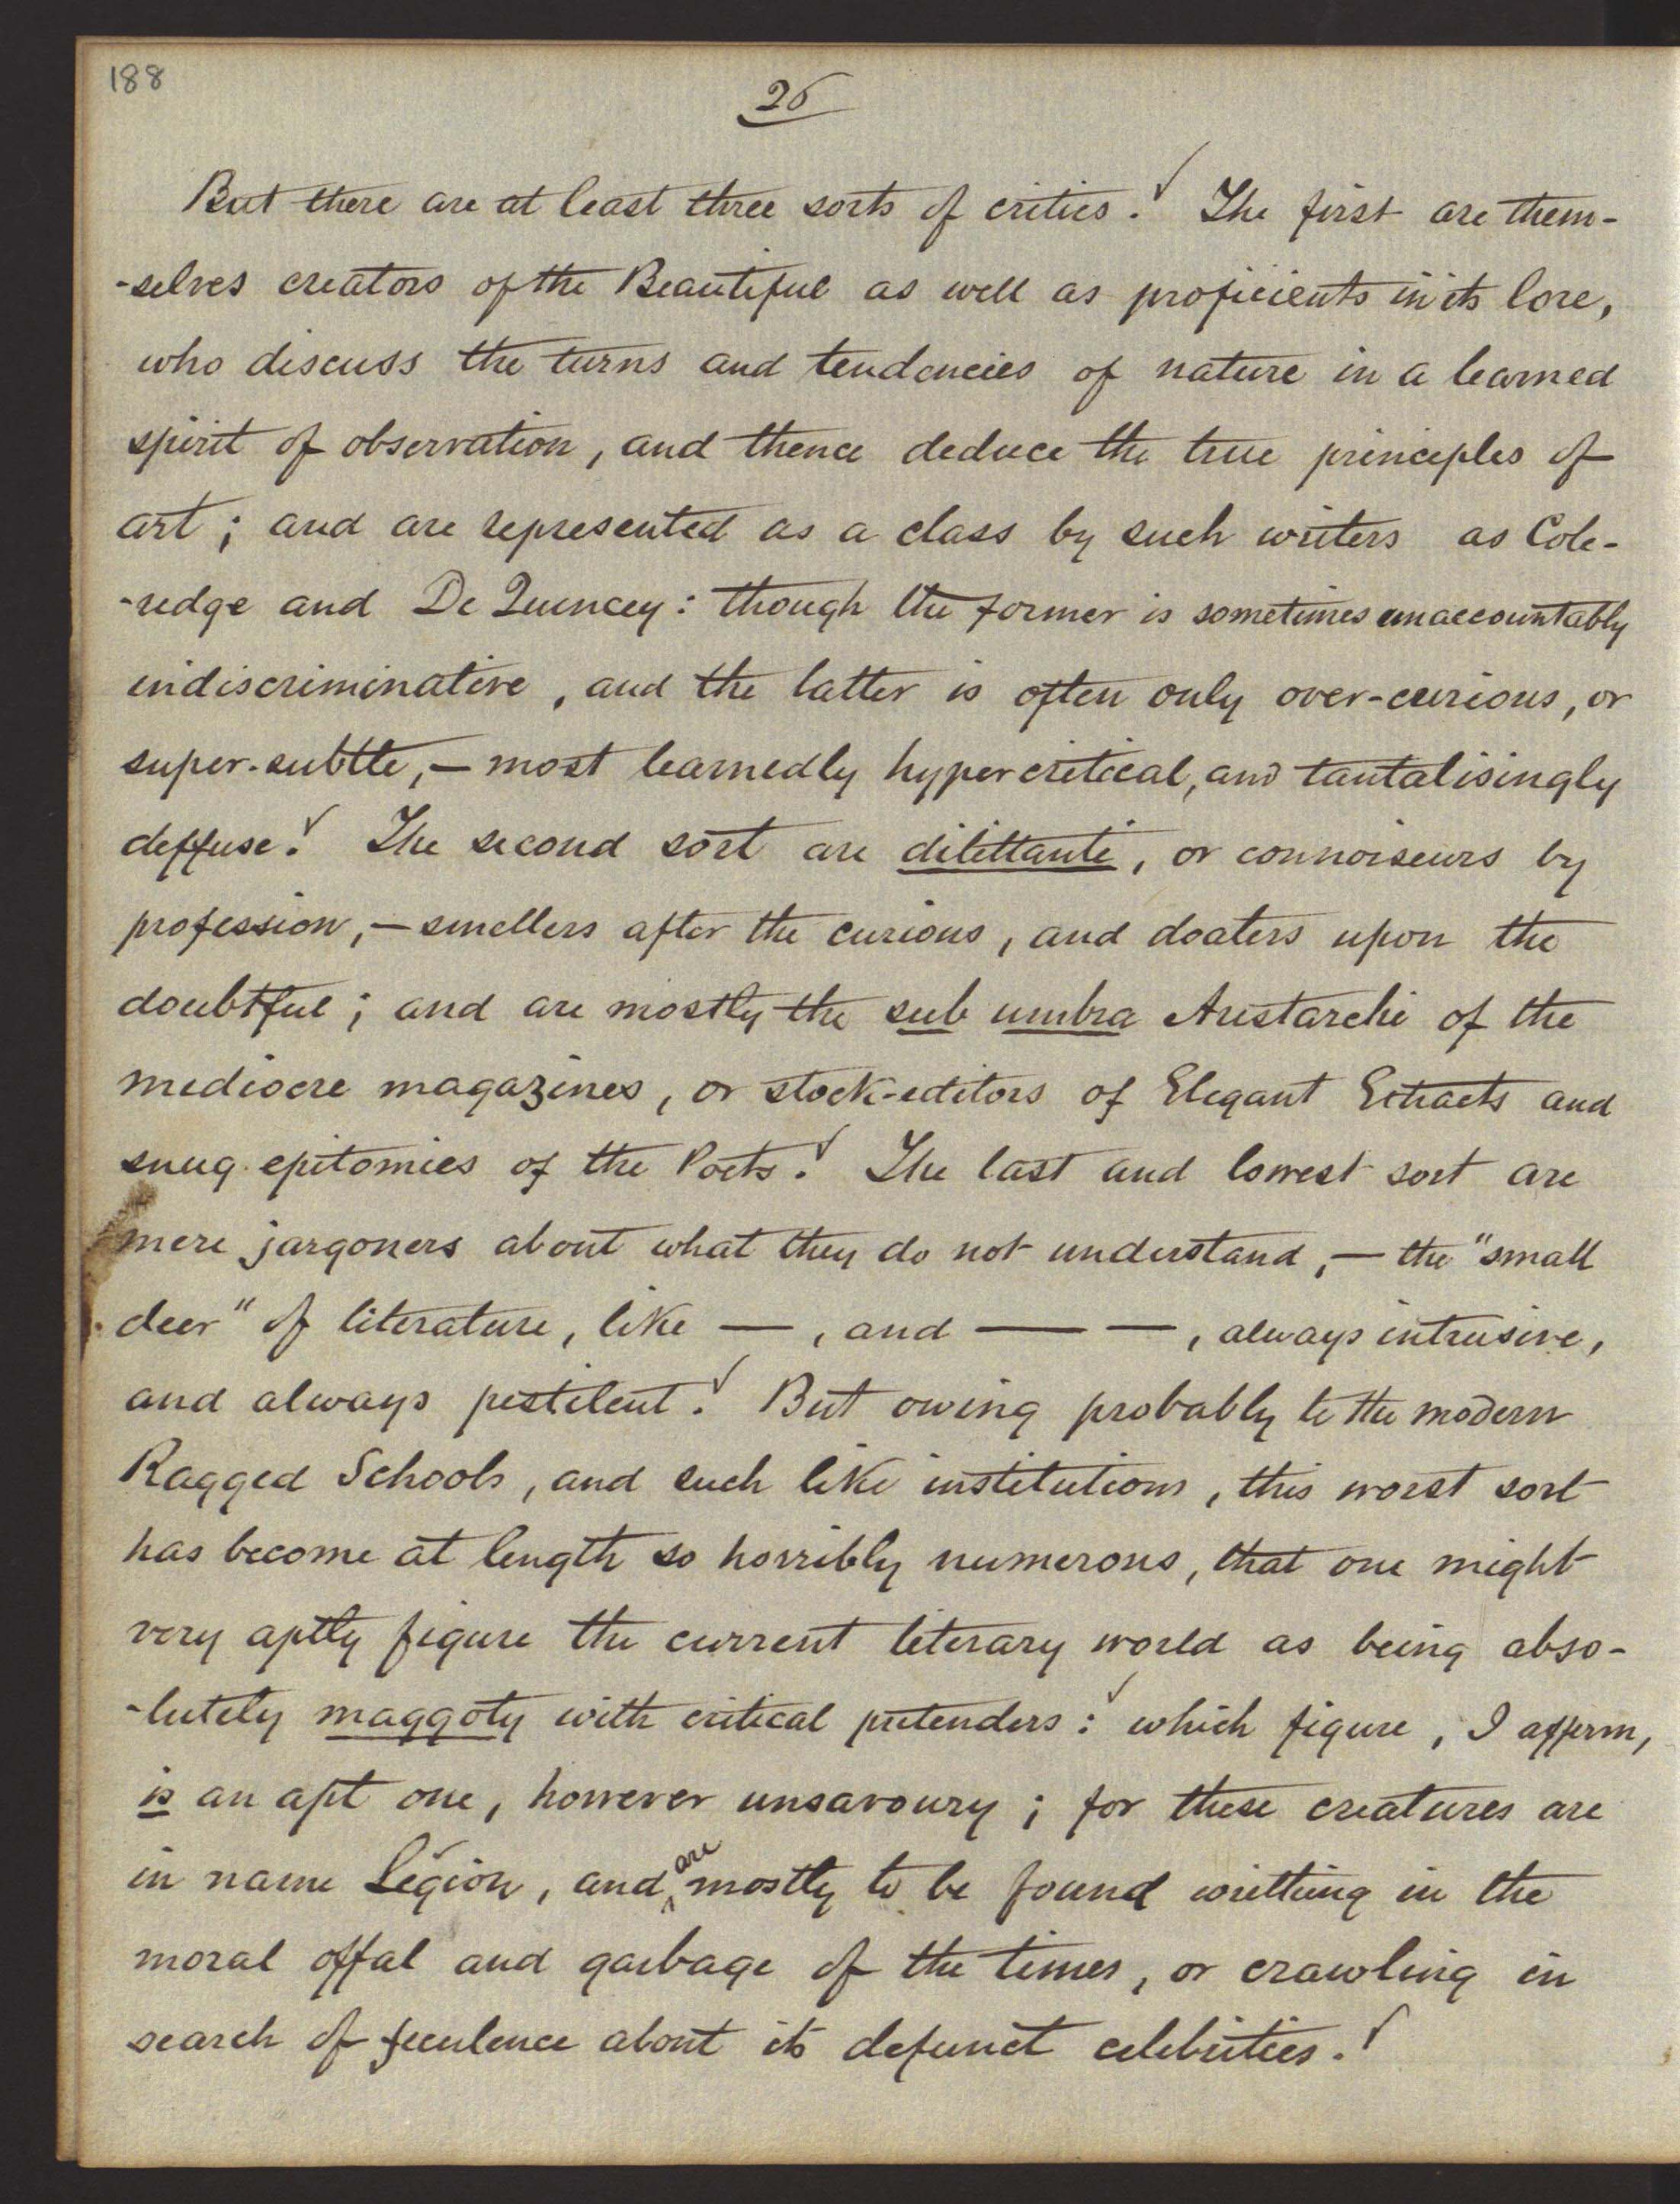 188
26
But there are at least three sorts of critics. The first are them-
-selves creators of the Beautiful as well as proficients in its lore,
who discuss the turns and tendencies of nature in a learned
spirit of observation, and thence deduce the true principles of
art; and are represented as a class by such writers as Cole-
-ridge and De Quincey: though the former is sometimes unaccountably
indiscriminative, and the latter is often only over-curious, or
super-subtle,— most learnedly hypercritical, and tantalisingly
diffuse. The second sort are dilettanti, or connoiseurs by
profession,— smellers after the curious, and doaters upon the
doubtful; and are mostly the sub umbra Aristarchi of the
mediocre magazines, or stock-editors of Elegant Extracts and
snug epitomies of the Poets. The last and lowest sort are
mere jargoners about what they do not understand,— the "small
deer" of literature, like —, and — —, always intrusive,
and always pestilent. But owing probably to the modern
Ragged Schools, and such like institutions, this worst sort
has become at length so horribly numerous, that one might
very aptly figure the current literary world as being abso-
-lutely maggoty with critical pretenders: which figure, I affirm,
is an apt one, however unsavoury; for these creatures are
in name Legion, and are mostly to be found writhing in the
moral offal and garbage of the times, or crawling in
search of feculence about its defunct celebrities.